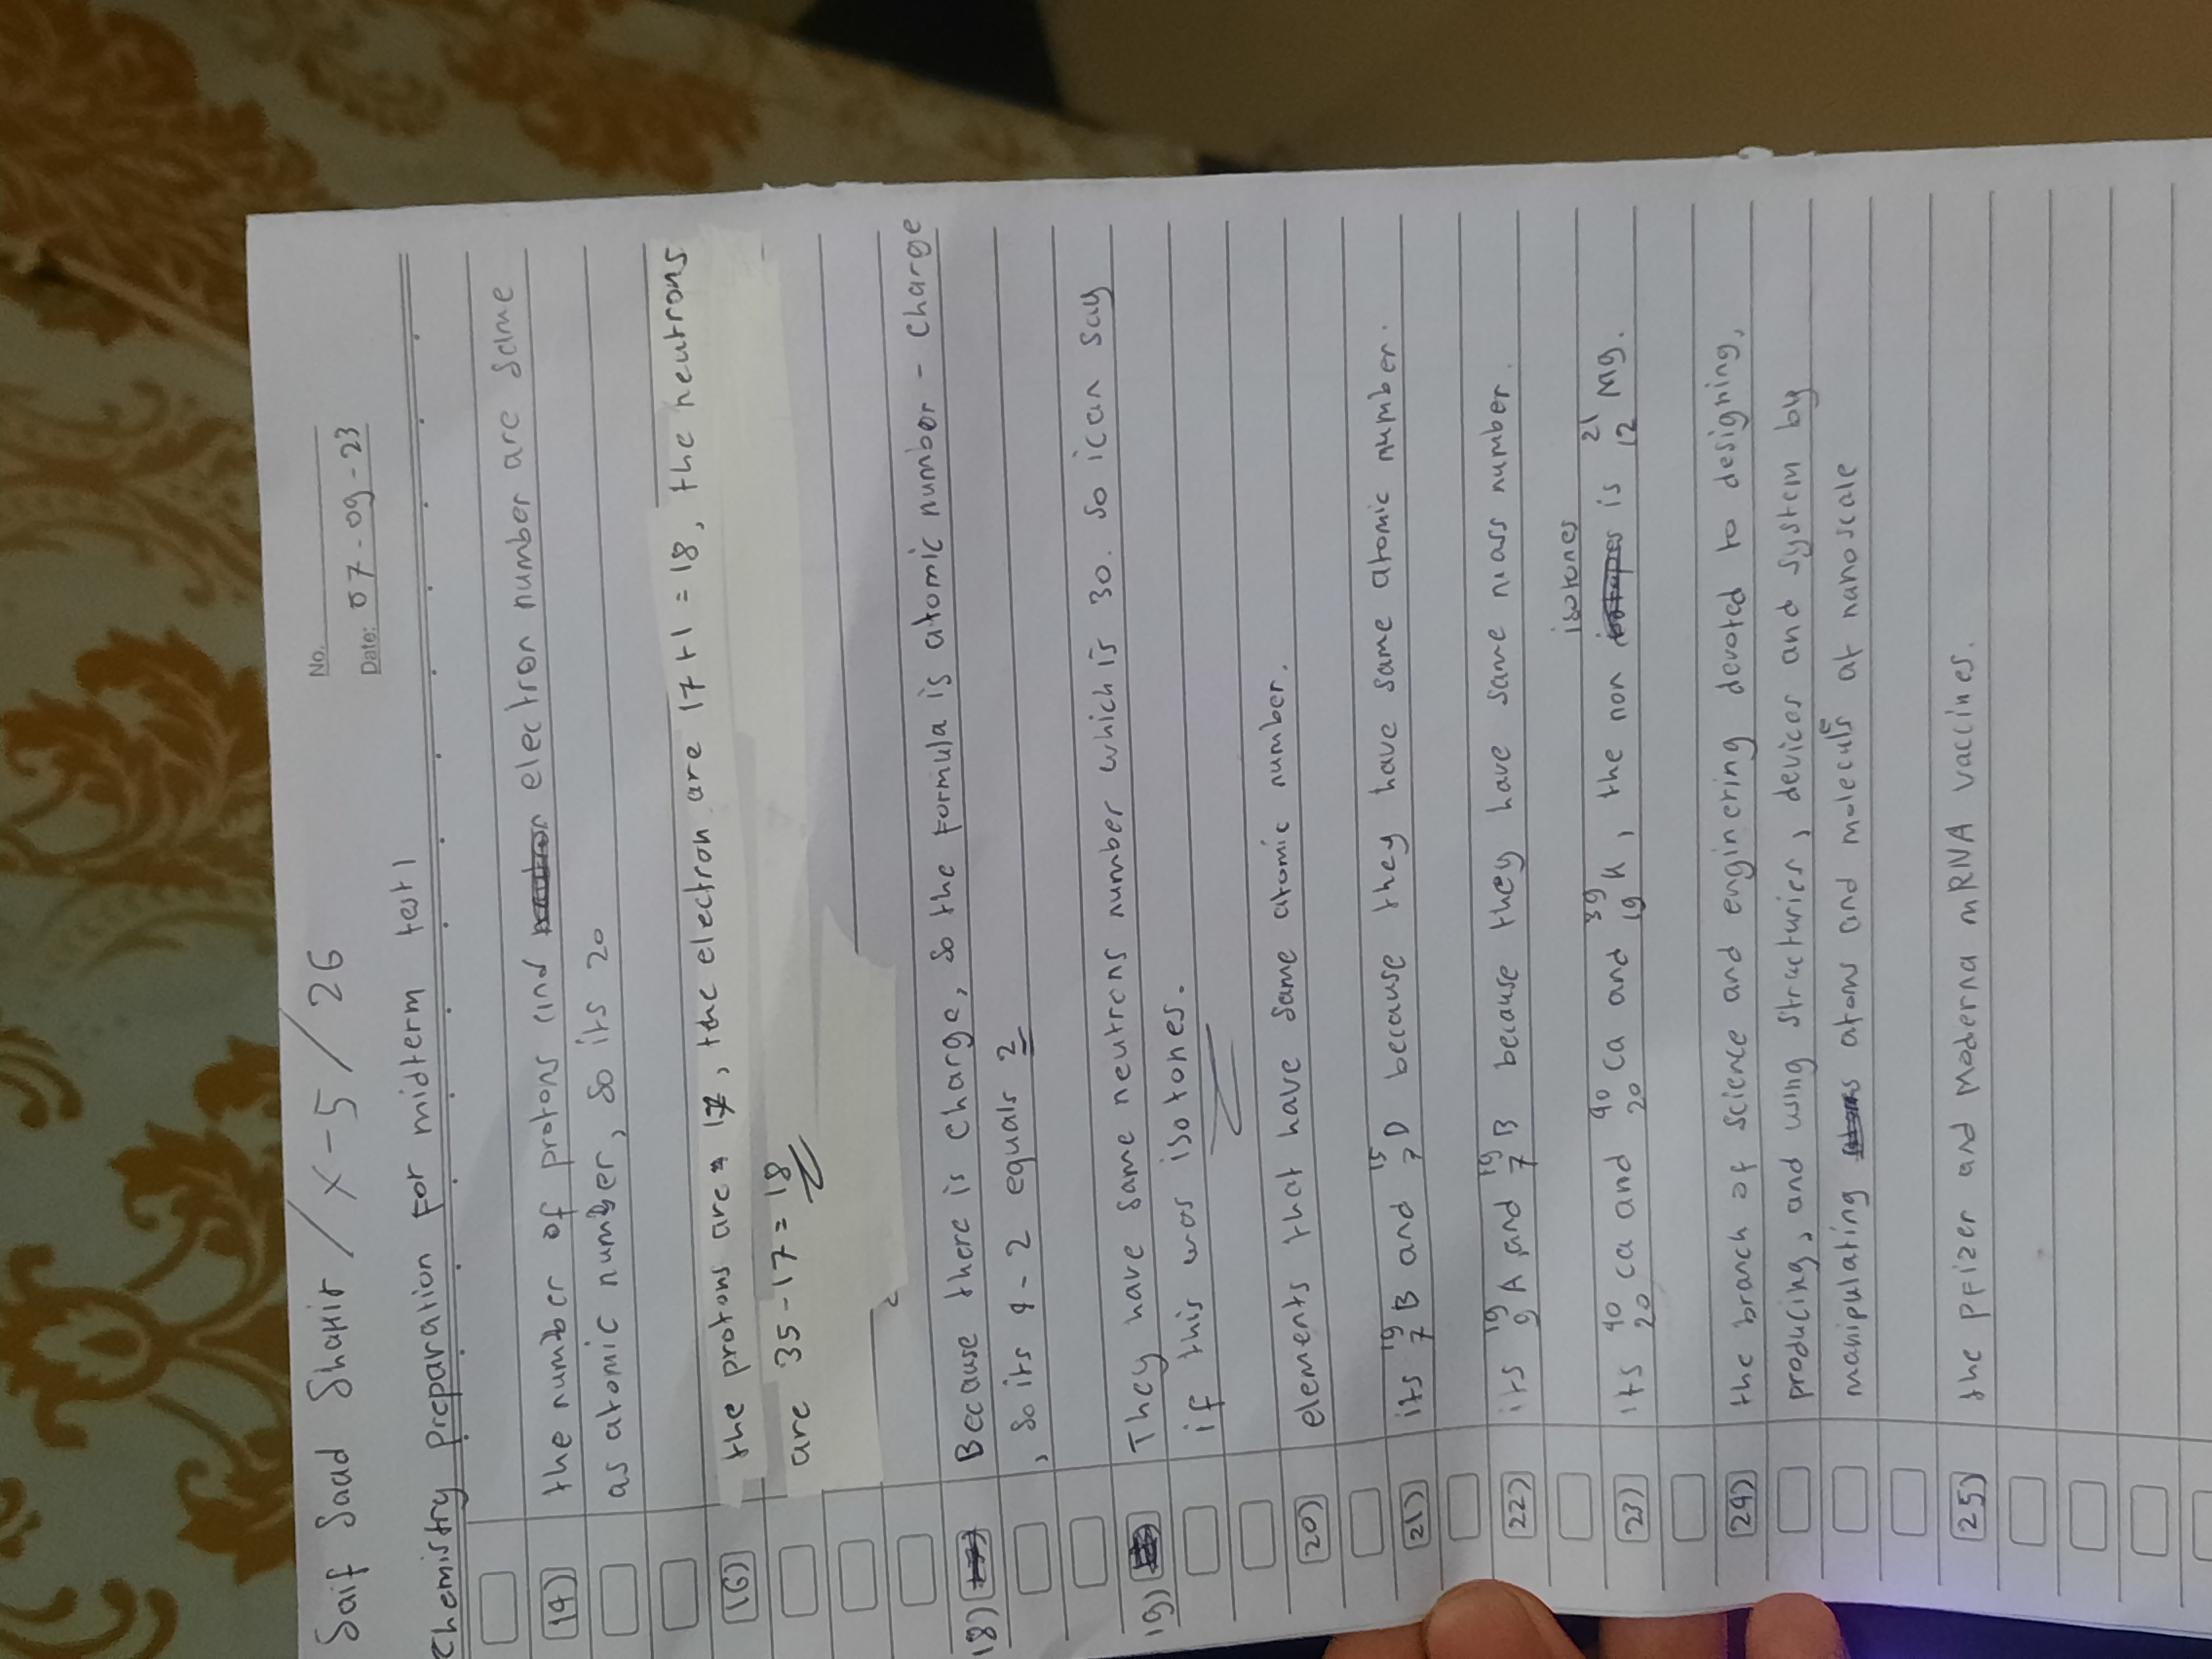 Saif Saad Shakir / X-5 / 26
No.
Date: 07-09-23
Chemistry preparation for midterm test 1
14) the number of protons and electron number are same
as atomic number, so its 20
16) the protons are 17, the electron are 17+1 = 18, the neutrons
are 35-17 = 18
18) Because there is charge, so the formula is atomic number - charge
, so its 4-2 equals 2
19) They have same neutrons number which is 30. so i can say
if this was isotones.
20) elements that have same atomic number.
21) its 19 7 B and 15 7 D because they have same atomic number.
22) its 19 9 A and 19 7 B because they have same mass number.
isotones
23) its 40 20 Ca and 40 20 Ca and 39 19 K, the non is 21 12 Mg.
24) the branch of science and enginering devoted to designing,
producing, and using structuries, devices and system by
manipulating atoms and molecule at nanoscale
25) the Pfizer and Moderna mRNA vaccines.